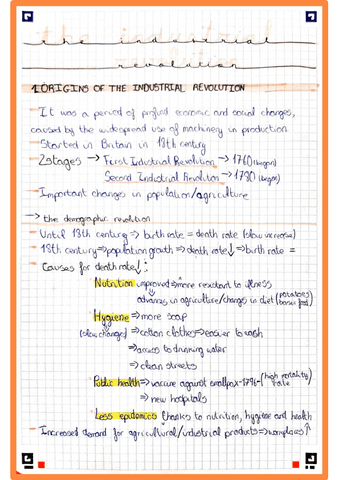 the industrial
revolution
1. ORIGINS OF THE INDUSTRIAL REVOLUTION
- It was a period of profund economic and social changes,
caused by the widespread use of machinery in production
- Started in Britain in 18th century
- 2 stages → First Industrial Revolution → 1760 (began)
Second Industrial Revolution → 1780 (began)
- Important changes in population/agriculture
→ the demographic revolution
- Until 18th century ⇒ birth rate = death rate (slow increase)
- 18th century ⇒ population growth ⇒ death rate ↓ ⇒ birth rate =
Causes for death rate ↓:
Nutrition improved ⇒ more resistant to illness
advances in agriculture/changes in diet (potatoes basic food)
Hygiene ⇒ more soap
(slow changes) ⇒ cotton clothes ⇒ easier to wash
⇒ access to drinking water
⇒ clean streets
Public health ⇒ vaccine against smallpox - 1796 - (high mortality rate
⇒ new hospitals
Less epidemics thanks to nutrition, hygiene and health
- Increased demand for agricultural/industrial products ⇒ workplaces ↑